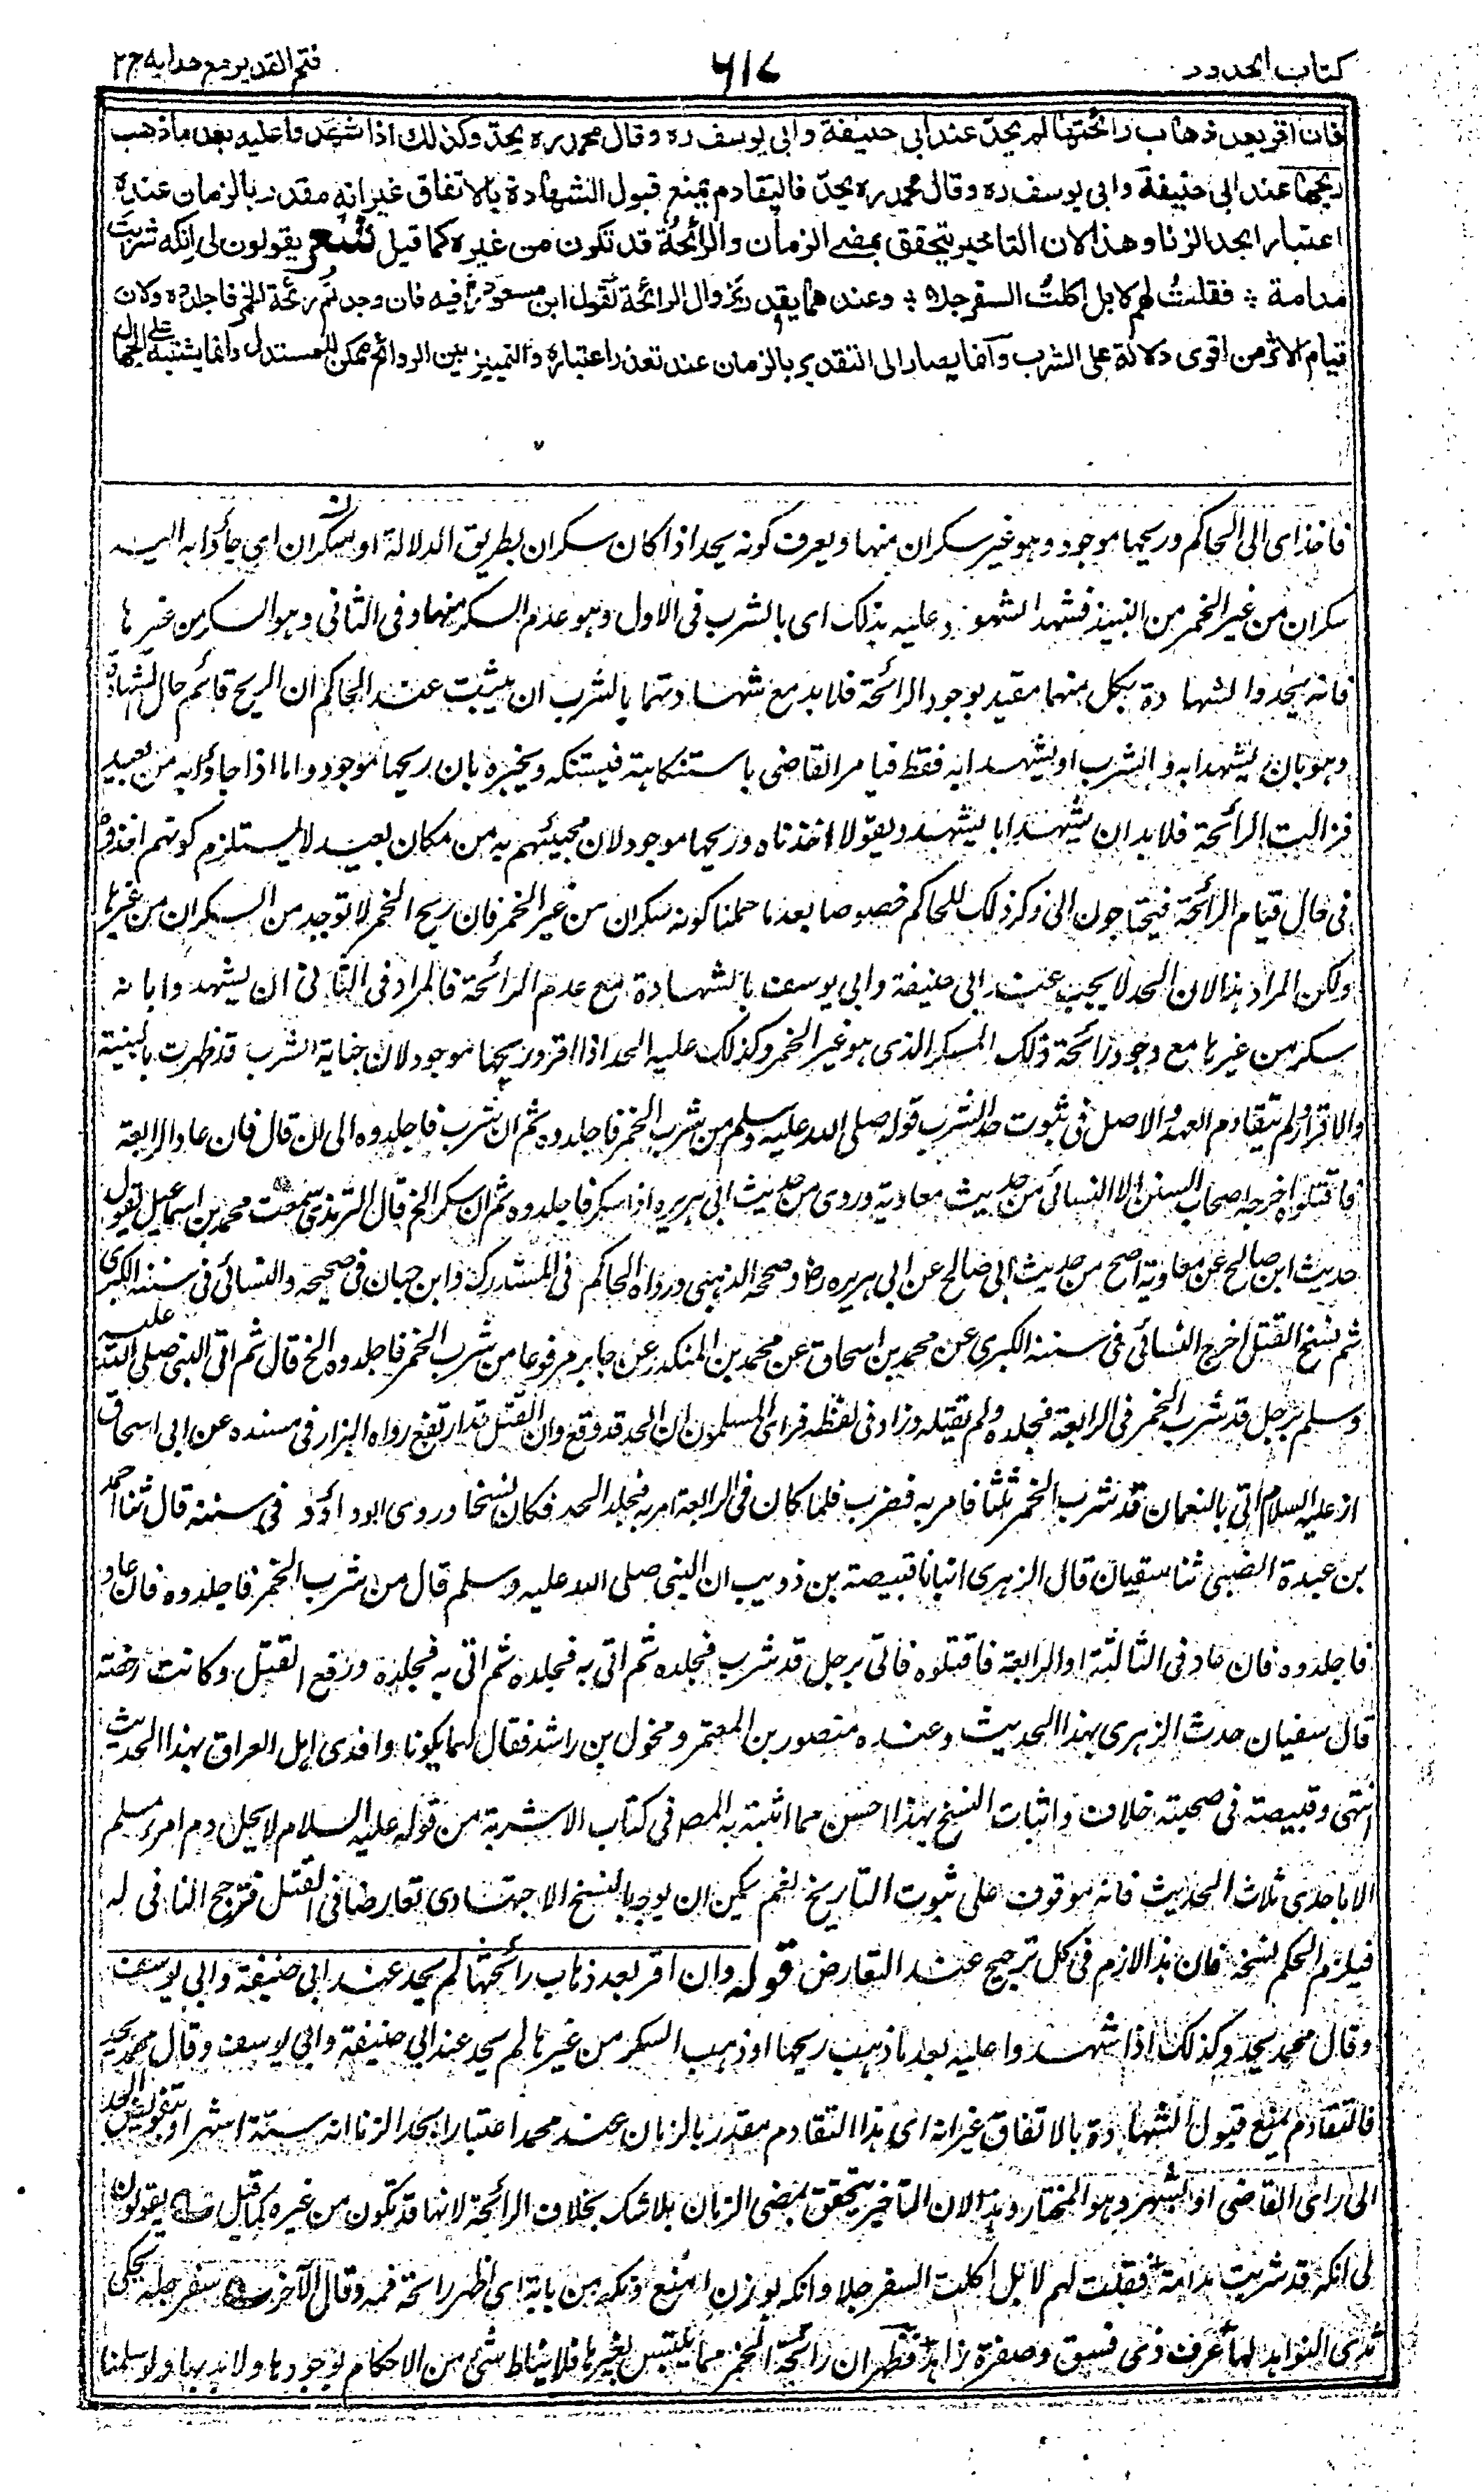 كتاب الحدود
٦١٧
فتح القدير مع هدايه ج٢
فان اقر بعد ذهاب رائحتها لم يحد عند ابي حنيفة وابي يوسف ره وقال محمد ره يحد وكذلك اذا شهدوا عليه بعد ما ذهب
ريحها عند ابي حنيفة وابي يوسف ره وقال محمد ره يحد فالتقادم يمنع قبول الشهادة بالاتفاق غير انه مقدر بالزمان عنده
اعتبارا بحد الزنا وهذا لان التاخير يتحقق بمضي الزمان والرائحة قد تكون من غيره كما قيل شعر يقولون لي انكه شربت
مدامة ؛ فقلت لهم لا بل اكلت السفرجلا ؛ وعندهما يقدر بزوال الرائحة لقول ابن مسعود رض فيه فان وجدتم رائحة الخمر فاجلدوه ولان
قيام الاثر من اقوى دلالة على الشرب وانما يصار الى التقدير بالزمان عند تعذر اعتباره والتمييز بين الروائح ممكن للمستدل وانما يشتبه على الجهال
فاخذ اى الى الحاكم وريحها موجود وهو غير سكران منها ويعرف كونه يحد اذا كان سكران بطريق الدلالة او سكران اى جاؤا به اليه
سكران من غير الخمر من النبيذ فشهد الشهود عليه بذلك اى بالشرب فى الاول وهو عدم السكر منها وفى الثانى وهو السكر من غيرها
فانه يحد والشهادة بكل منهما مقيد بوجود الرائحة فلا بد مع شهادتهما بالشرب ان يثبت عند الحاكم ان الريح قائم حال الشهادة
وهو بان يشهدا به وبالشرب او يشهدا به فقط فيامر القاضى باستنكاهه فيستنكه ويخبره بان ريحها موجود واما اذا جاؤا به من بعيد
فزالت الرائحة فلا بد ان يشهدا بالشرب ويقولا اخذناه وريحها موجود لان مجيئهم به من مكان بعيد لا يستلزم كونهم اخذوه
فى حال قيام الرائحة فيحتاجون الى ذكر ذلك للحاكم خصوصا بعد ما حملنا كونه سكران من غير الخمر فان ريح الخمر لا توجد من السكران من غيرها
ولكن المراد هذا لان الحد لا يجب عند ابى حنيفة وابى يوسف بالشهادة مع عدم الرائحة فالمراد فى الثانى ان يشهدوا بانه
سكر من غيرها مع وجود رائحة ذلك المسكر الذى هو غير الخمر وكذلك عليه الحد اذا اقر وريحها موجود لان جناية الشرب قد ظهرت بالبينة
والاقرار ولم يتقادم العهد والاصل فى ثبوت حد الشرب قوله صلى الله عليه وسلم من شرب الخمر فاجلدوه ثم ان شرب فاجلدوه الى ان قال فان عاد الرابعة
فاقتلوه اخرجه اصحاب السنن الا النسائى من حديث معاوية وروى من حديث ابى هريره اذا سكر فاجلدوه ثم ان سكر الخ قال الترمذى سمعت محمد بن اسمعيل يقول
حديث ابى صالح عن معاوية اصح من حديث ابى صالح عن ابى هريره رض وصححه الذهبى ورواه الحاكم فى المستدرك وابن حبان فى صحيحه والنسائى فى سننه الكبرى
ثم نسخ القتل اخرج النسائى فى سننه الكبرى عن محمد بن اسحاق عن محمد بن المنكدر عن جابر مرفوعا من شرب الخمر فاجلدوه الخ قال ثم اتى النبى صلى الله عليه
وسلم برجل قد شرب الخمر فى الرابعة فجلده ولم يقتله وزاد فى لفظه فراى المسلمون ان الحد قد وقع وان القتل قد ارتفع رواه البزار فى مسنده عن ابى اسحاق
انه عليه السلام اتى بالنعمان قد شرب الخمر ثلثا فامر به فضرب فلما كان فى الرابعة امر به فجلد الحد فكان نسخا وروى ابو داؤد فى سننه قال ثنا احمد
بن عبدة الضبى ثنا سفيان قال الزهرى انبانا قبيصة بن ذويب ان النبى صلى الله عليه وسلم قال من شرب الخمر فاجلدوه فان عاد
فاجلدوه فان عاد فى الثالثة او الرابعة فاقتلوه فاتى برجل قد شرب فجلده ثم اتى به فجلده ثم اتى به فجلده ورفع القتل وكانت رخصة
قال سفيان حدث الزهرى بهذا الحديث وعنده منصور بن المعتمر ومخول بن راشد فقال لهما كونا وافدى اهل العراق بهذا الحديث
انتهى وقبيصة فى صحبته خلاف واثبات النسخ بهذا احسن مما اثبته به المصـ فى كتاب الاشربة من قوله عليه السلام لا يحل دم امرء مسلم
الا باحدى ثلاث الحديث فانه موقوف على ثبوت التاريخ نعم يمكن ان يوجه بالنسخ الاجتهادى تعارضا فى القتل فترجح النافى له
فيلزم الحكم بنسخه فان هذا لازم فى كل ترجيح عند التعارض قوله وان اقر بعد ذهاب رائحتها لم يحد عند ابى حنيفة وابى يوسف
وقال محمد يحد وكذلك اذا شهدوا عليه بعد ما ذهب ريحها او ذهب السكر من غيرها لم يحد عند ابى حنيفة وابى يوسف وقال محمد يحد
فالتقادم يمنع قبول الشهادة بالاتفاق غير انه اى هذا التقادم مقدر بالزمان عند محمد اعتبارا بحد الزنا انه ستة اشهر او بتفويض الحد
الى راى القاضى او بشهر وهو المختار وهذا لان التاخير يتحقق بمضى الزمان بلا شك بخلاف الرائحة لانها قد تكون من غيره كما قيل يقولون
لى انكه قد شربت مدامة فقلت لهم لا بل اكلت السفرجلا وانكه بوزن امنع ونكه من بابه اى اظهر رائحة فمه وقال الآخر سفرجلة تحكى
ثدى النواهد لها عرف ذى فسق وصفرة زاهد فظهر ان رائحة الخمر مما يلتبس بغيرها فلا يناط شئ من الاحكام بوجودها ولا بذهابها ولو سلمنا